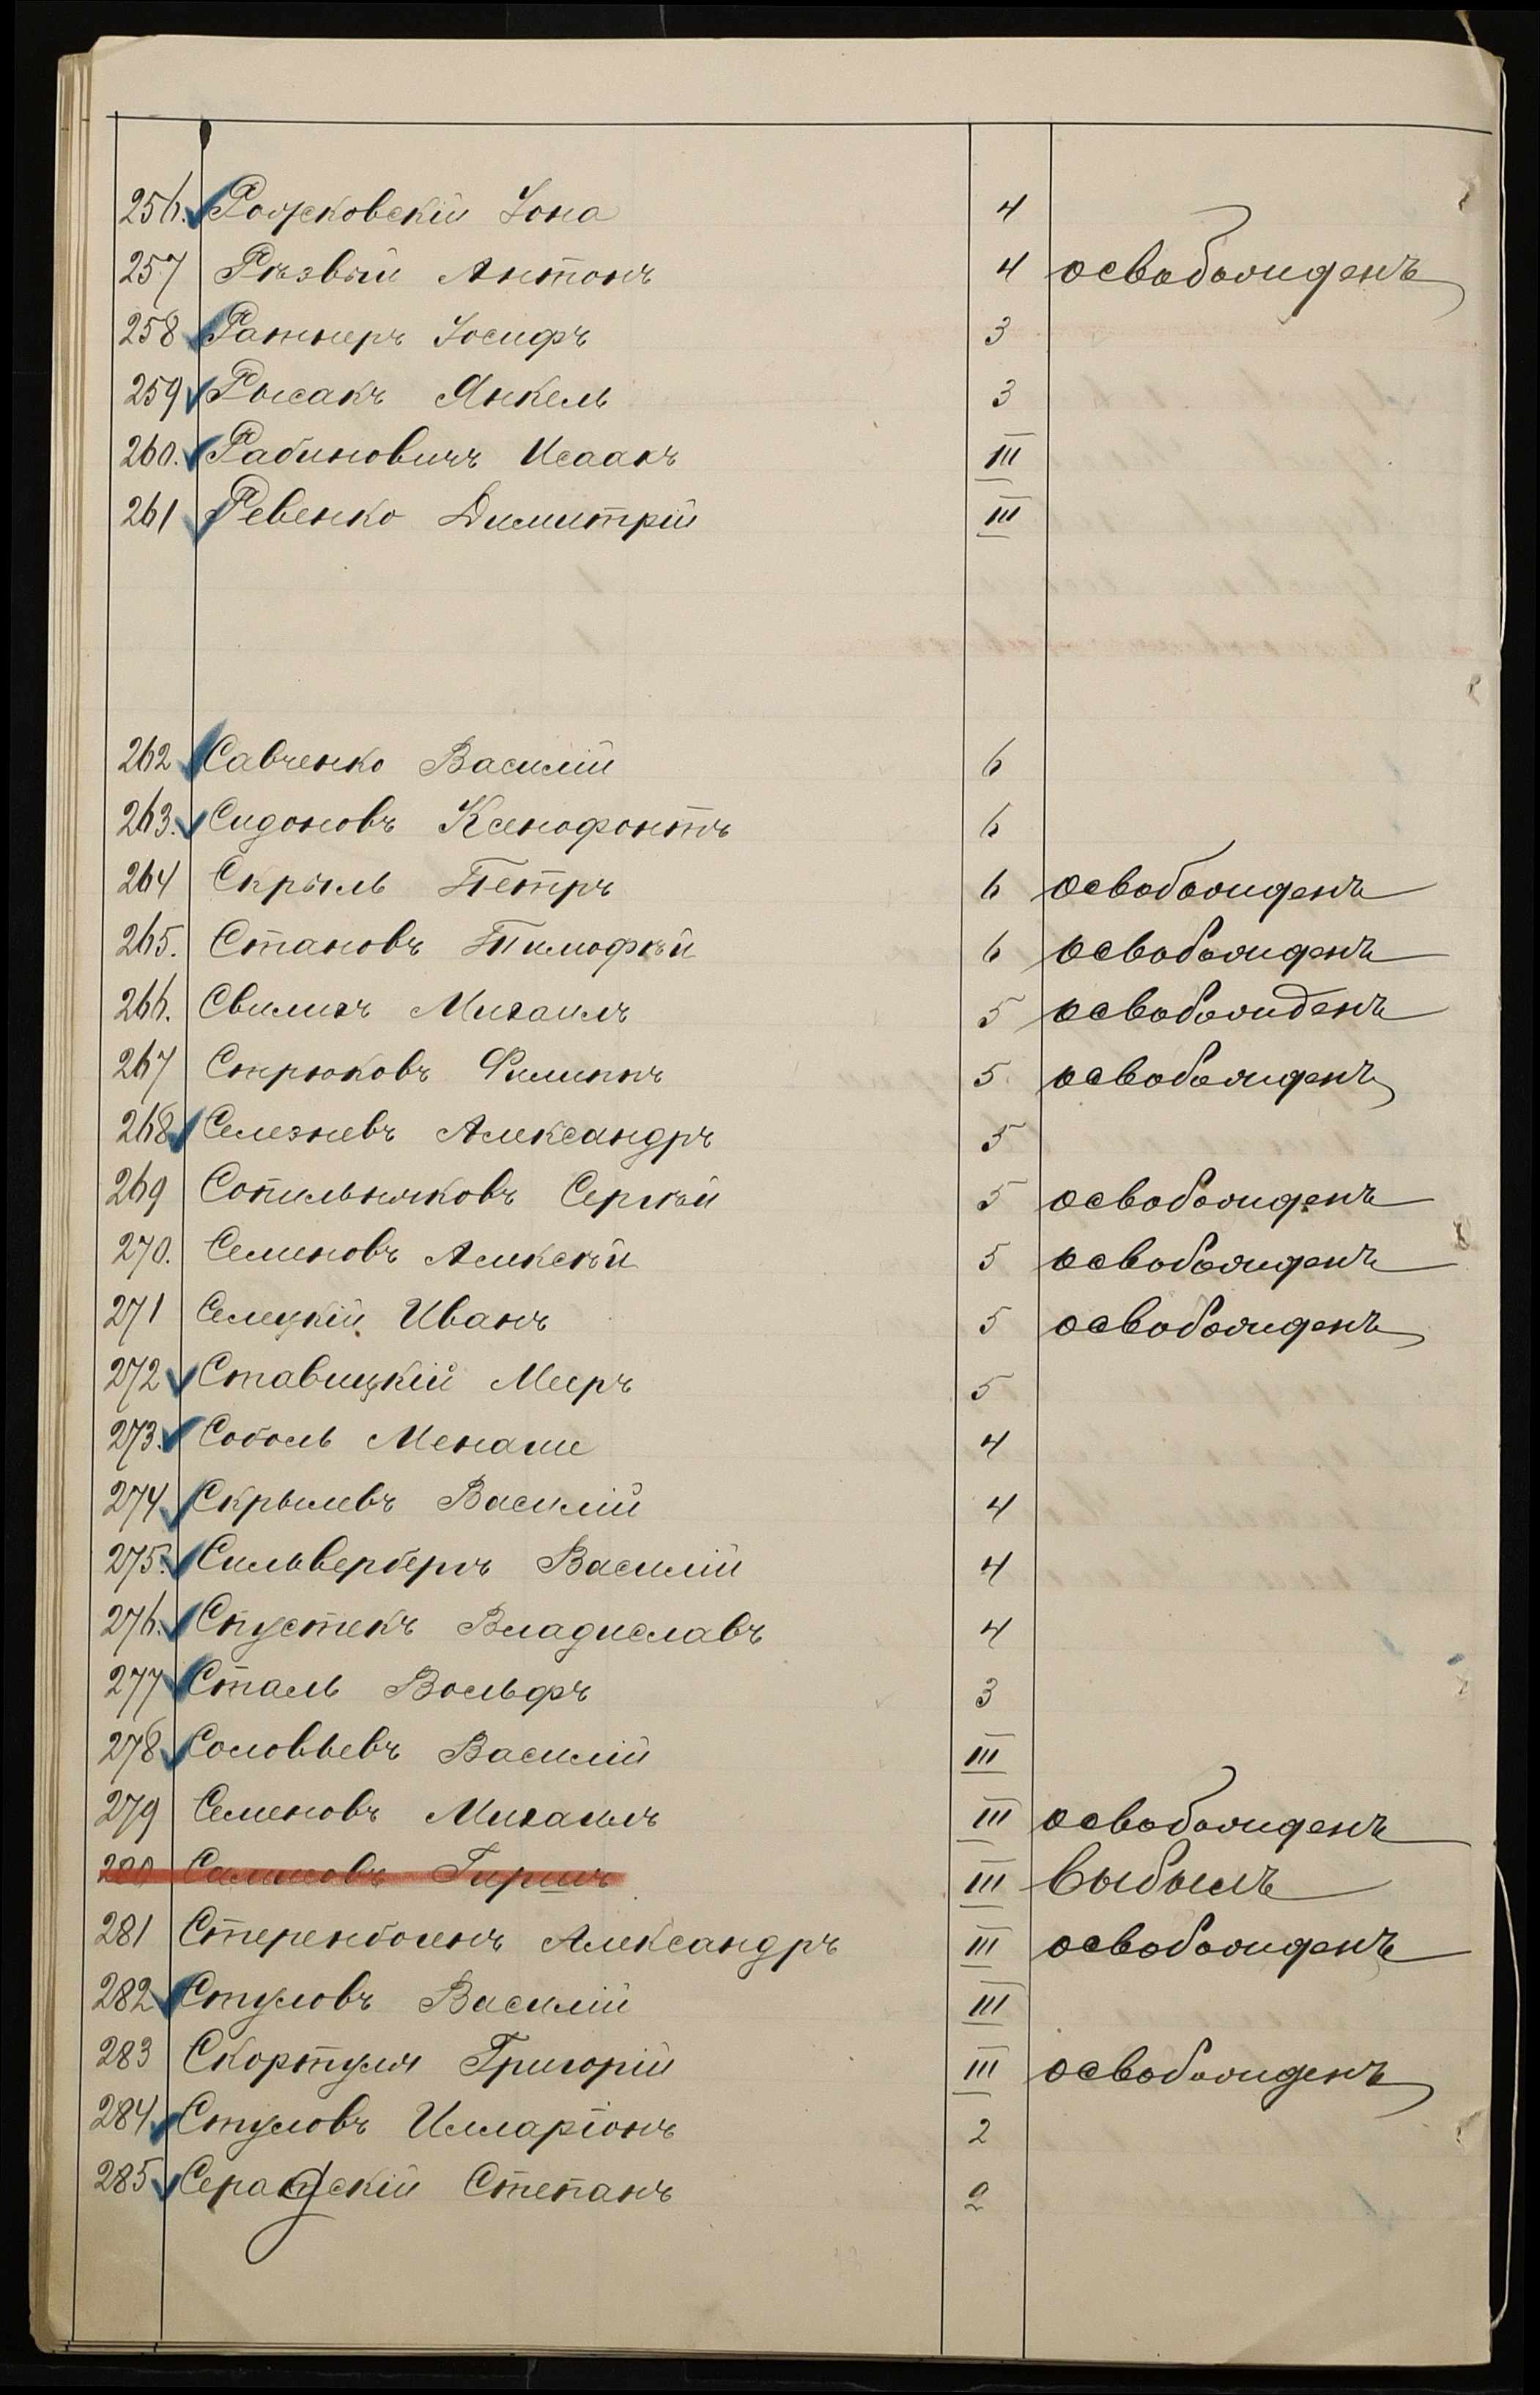 256. Рожковскій Іона 4
257 Рѣзвый Антонъ 4 освобожденъ
258 Ратнеръ Іосифъ 3
259 Рысакъ Янкель 3
260. Рабиновичъ Исаакъ III
261 Ревенко Димитрій III
262 Савченко Василій 6
263. Сидоновъ Ксенофонтъ 6
264 Скрыль Петръ 6 освобожденъ
265. Становъ Тимофѣй 6 освобожденъ
266. Свиличъ Михаилъ 5 освобожденъ
267 Снрюковъ Филиппъ 5 освобожденъ
268 Селезневъ Александръ 5
269 Сопильняковъ Сергѣй 5 освобожденъ
270. Семеновъ Алексѣй 5 освобожденъ
271 Селецкій Иванъ 5 освобожденъ
272 Ставицкій Мееръ 5
273. Соболь Менаше 4
274 Скрылевъ Василій 4
275. Сильвербергъ Василій 4
276. Спустекъ Владиславъ 4
277 Сталь Вольфъ 3
278 Соловьевъ Василій III
279 Семеновъ Михаилъ III освобожденъ
280 Гиршъ III выбылъ
281 Стеренбогенъ Александръ III освобожденъ
282 Стуловъ Василій III
283 Скортуля Григорій III освобожденъ
284 Стуловъ Илларіонъ 2
285 Серафскій Степанъ 2